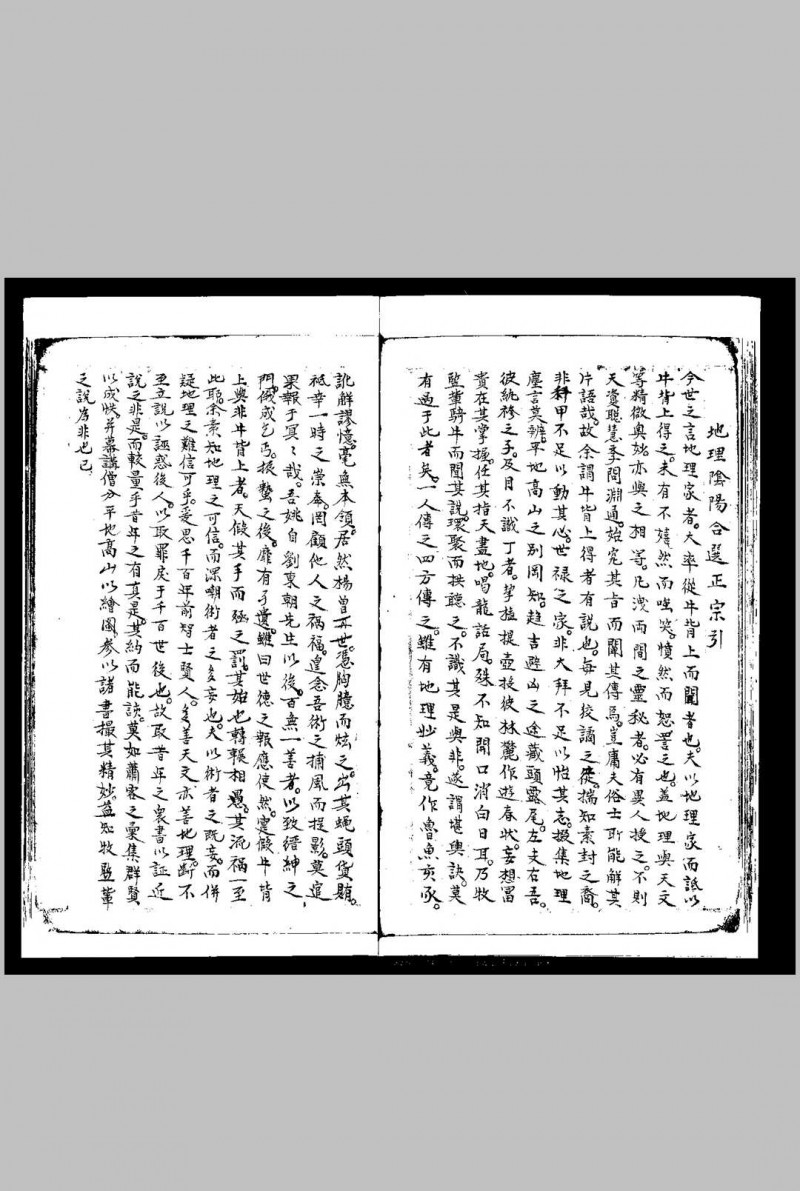 地理陰陽合選正宗引
今世之言地理家者。大率從牛背上而聞者也。夫以地理家而詆以
牛背上得之。未有不嘻然而哂笑。憤然而怒詈之也。蓋地理與天文
等精微奧妙亦與之相等。凡洩兩間之靈秘者。必有異人授之。不則
天資聰慧。李問淵通。始究其旨而闡其傳焉。豈庸夫俗士所能解其
片語哉。故余謂牛背上得者有說也。每見狡譎之徒。揣知素封之裔。
非科甲不足以動其心。世禄之家。非大拜不足以怡其志。掇集地理
塵言莫辨。平地高山之別罔知。趨吉避凶之途藏頭露尾。左支右吾。
彼紈袴之子。及目不識丁者。挈榼提壺。援彼林麓作遊春狀。妄想冨
貴在其掌握。任其指天畫地。喝龍詁局。殊不知開口消白日耳。乃牧
豎輩騎牛而聞其說。環聚而拱聽之。不識其是與非。遂謂堪輿訣。莫
有過于此者矣。一人傳之四方傳之。雖有地理妙義。竟作魯魚亥豕。
訛解謬憶。毫無本領。居然楊曾再世。憑胸臆而炫之。出其蠅頭貨賄。
祗幸一時之崇奉。罔顧他人之禍福。遑念吾術之捕風而捉影。莫逭
果報于冥冥哉。吾姚自劉東朝先生以後。百無一善者。以致縉紳之
門。俄成乞丐。振蟄之後。靡有孑遺。雖曰世德之報應使然。寔倣牛背
上與非牛背上者。天假其手而殛之罰。其始也轉輾相愚。其流禍一至
此耶。余素知地理之可信。而深嘲術者之多妄也。夫以術者之旣妄。而併
疑地理之難信可乎。爰思千百年前智士賢人。多善天文亦善地理。斷不
至立說以誣惑後人。以取罪戾于千百世後也。故取昔年之衆書以証近
說之非是。而較量乎昔年之有真是。其約而能該。莫如蕭客之彙集群賢
以成帙。并幕講僧分平地高山以繪圖。參以諸書撮其精妙。益知牧豎輩
之說為非也已